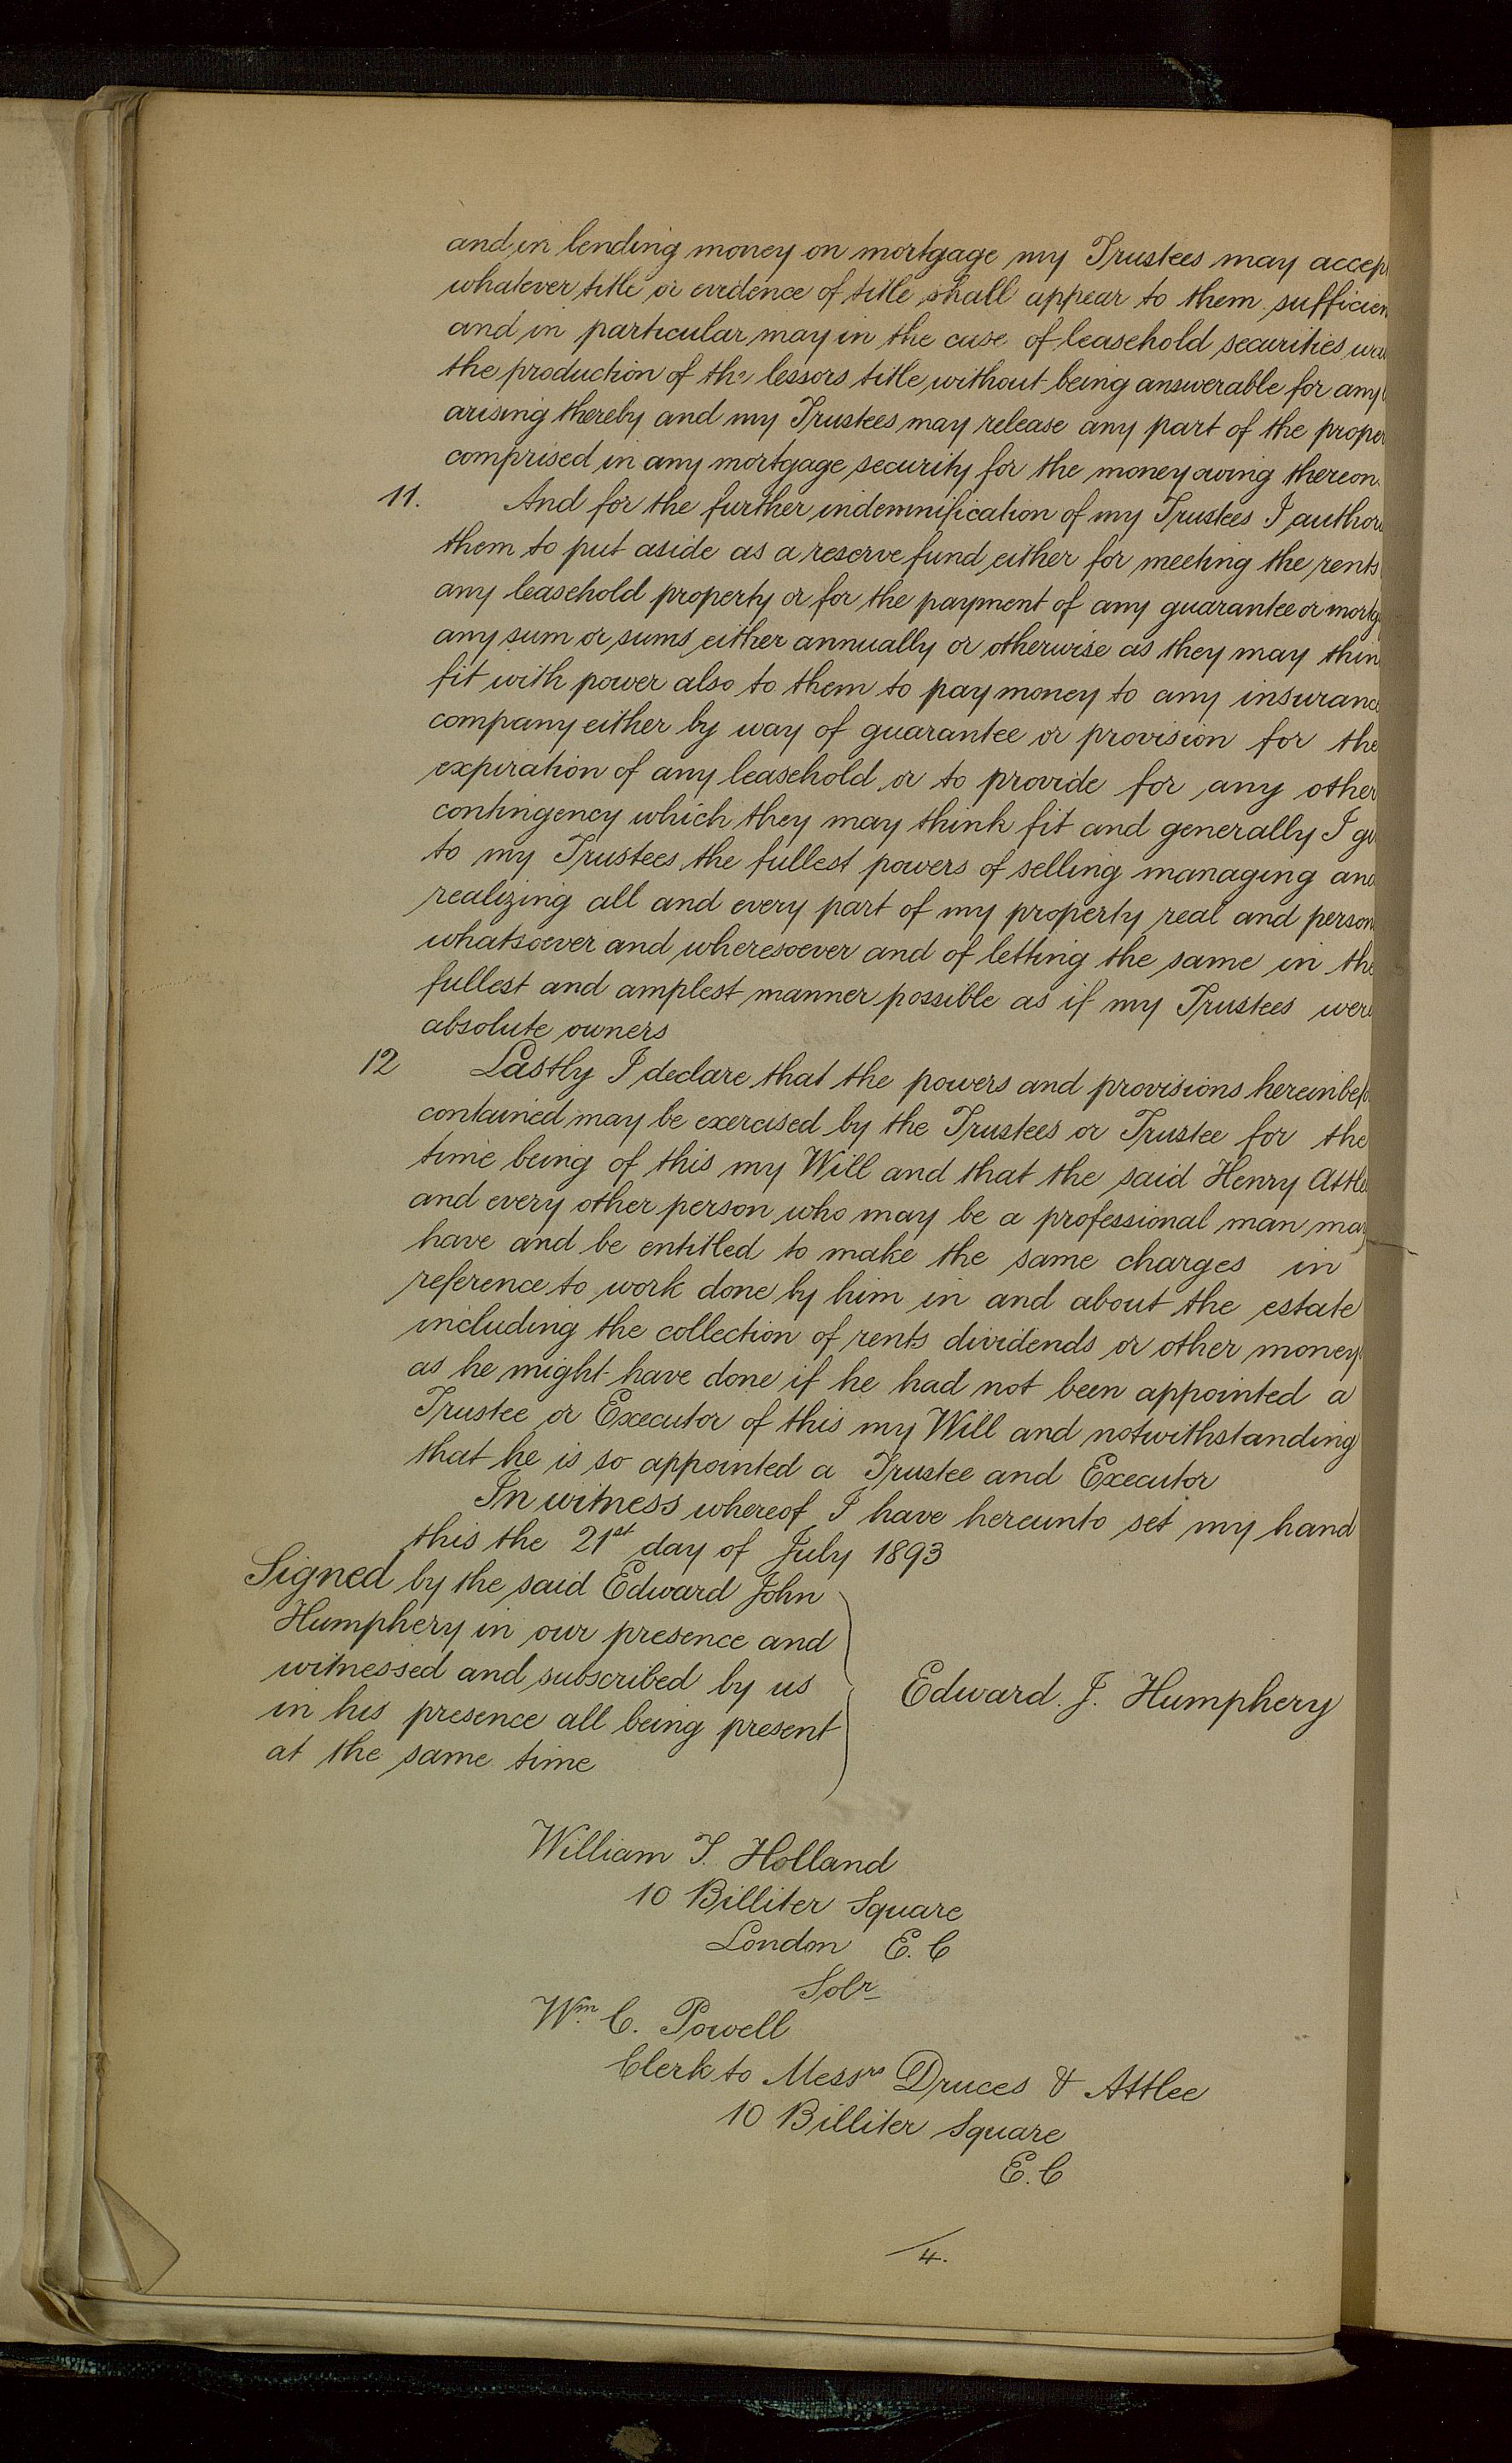 and in lending money on mortgage my Trustees may accep
whatever title or evidence of title shall appear to them sufficien
and in particular may in the case of leasehold securities wai
the production of the lessors title without being answerable for any
arising thereby and my Trustees may release any part of the proper
comprised in any mortgage security for the money owing thereon.
11. And for the further indemnification of my Trustees I authori
them to put aside as a reserve fund either for meeting the rents
any leasehold property or for the payment of any guarantee or mortg
any sum or sums either annually or otherwise as they may thin
fit with power also to them to pay money to any insuranc
company either by way of guarantee or provision for the
expiration of any leasehold or to provide for any other
contingency which they may think fit and generally I gi
to my Trustees the fullest powers of selling managing and
realizing all and every part of my property real and person
whatsoever and wheresoever and of letting the same in the
fullest and amplest manner possible as if my Trustees were
absolute owners
12 Lastly I declare that the powers and provisions hereinbefo
contained may be exercised by the Trustees or Trustee for the
time being of this my Will and that the said Henry Attle
and every other person who may be a professional man may
have and be entitled to make the same charges in
reference to work done by him in and about the estate
including the collection of rents dividends or other moneys
as he might have done if he had not been appointed a
Trustee or Executor of this my Will and notwithstanding
that he is so appointed a Trustee and Executor
In witness whereof I have hereunto set my hand
this the 21st day of July 1893
Signed by the said Edward John
Humphery in our presence and
witnessed and subscribed by us
in his presence all being present
at the same time
Edward. J. Humphery
William T. Holland
10 Billiter Square
London E.C
Solr
Wm. C. Powell
Clerk to Messrs Druces & Attlee
10 Billiter Square
E.C
4.